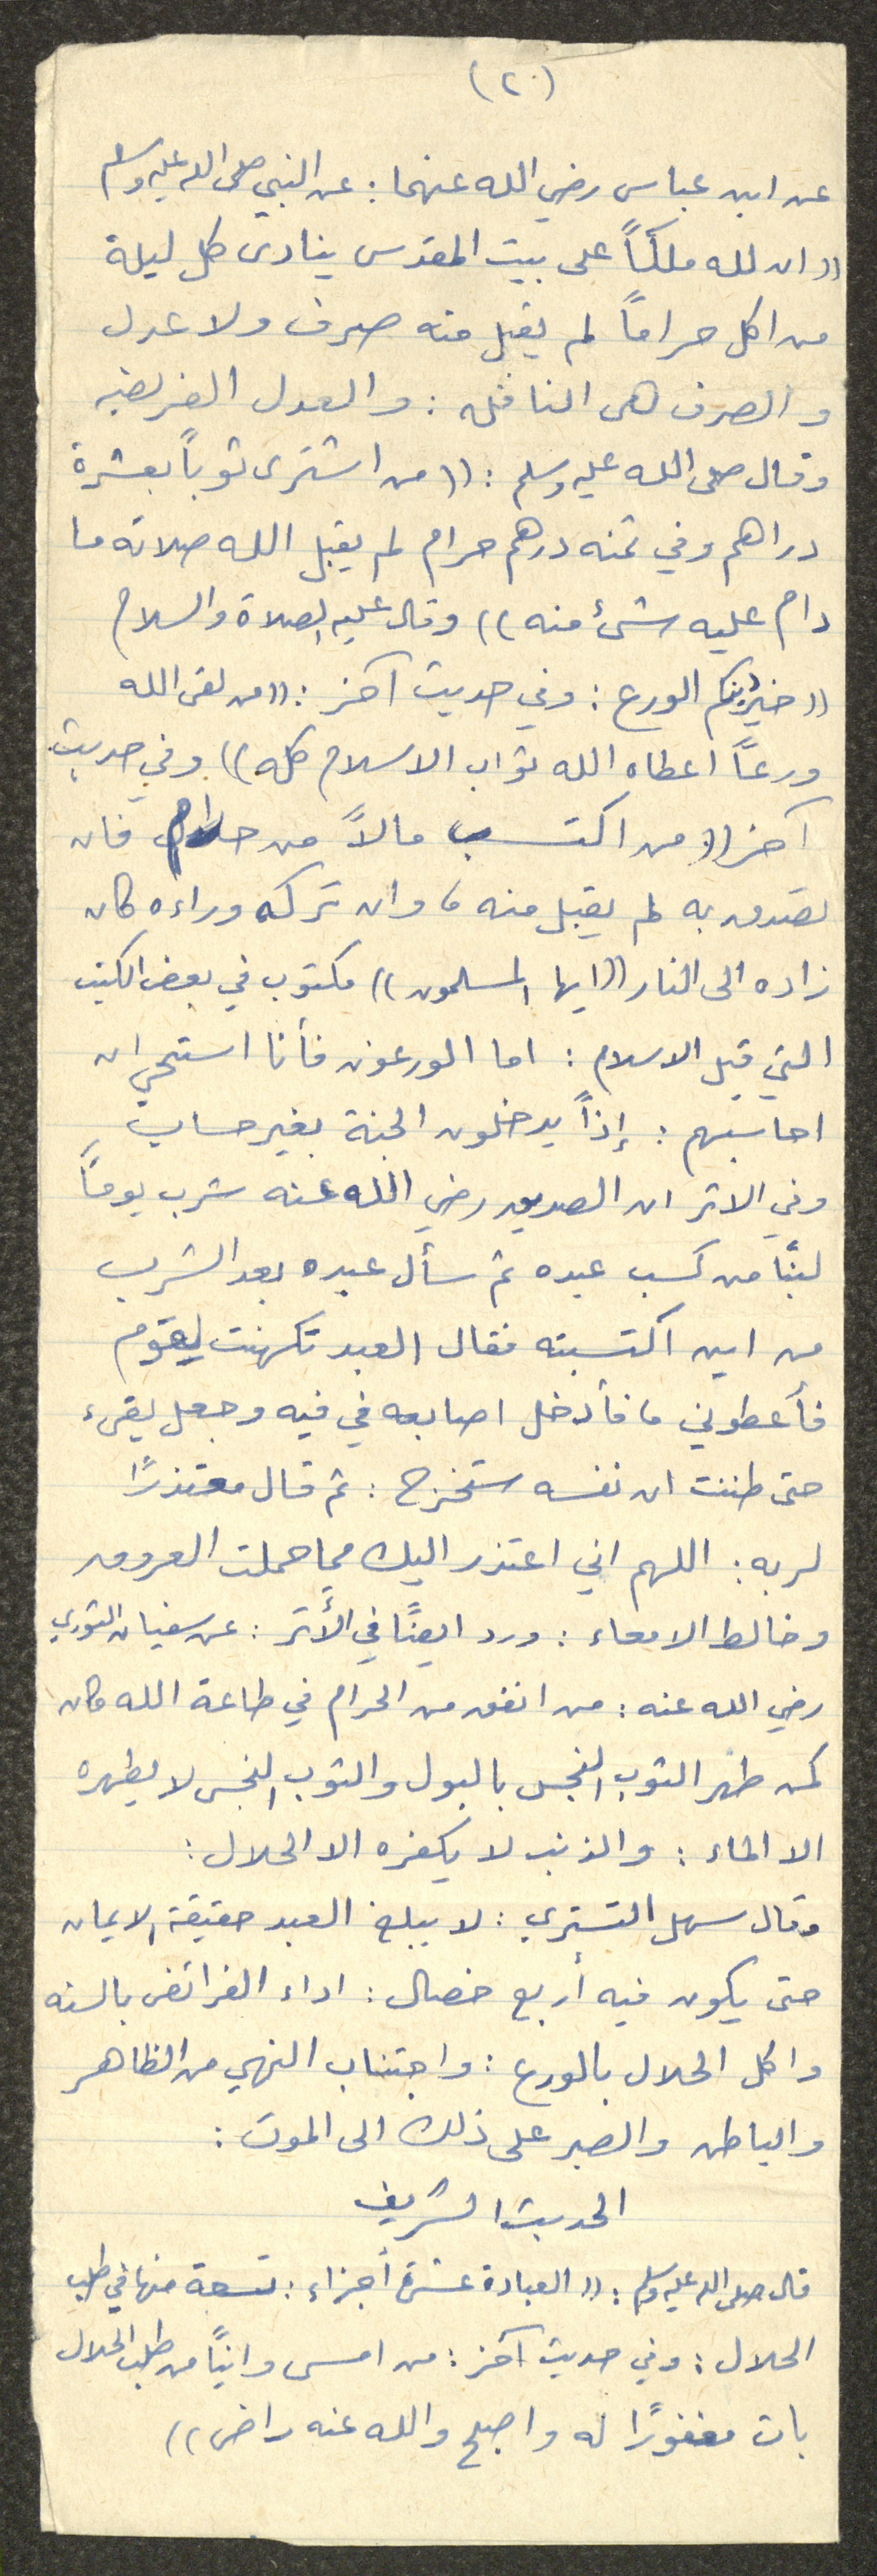 (٢٠)
عن ابن عباس رضي الله عنهما : عن النبي صلى الله عليه وسلم
(( ان لله ملكاً على بيت المقدس ينادى كل ليلة
من اكل حراماً لم يقبل منه صرف ولا عدل
و الصرف هى النافله : و العدل الفريضه
وقال صلى الله عليه وسلم : (( من اشترى ثوباً بعشرة
دراهم وفي ثمنه درهم حرام لم يقبل الله صلاته ما
دام عليه شىء منه )) وقال عليه الصلاة والسلام
(( خير دينكم الورع : وفي حديث آخر : (( من لقى الله
ورعاً اعطاه الله ثواب الاسلام كله )) وفي حديث
آخر (( من اكتسب مالاً من حرام فان
تصدق به لم يقبل منه ، وان تركه وراءه كان
زاده الى النار (( ايها المسلمون )) مكتوب في بعض الكتب
التي قبل الاسلام : اما الورعون فأنا استحي ان
احاسبهم : إذاً يدخلون الجنة بغير حساب
وفي الاثر ان الصديق رضي الله عنه شرب يوماً
لبنًا من كسب عبده ثم سأل عبده بعد الشرب
من اين اكتسبته فقال العبد تكهنت لقوم
فأعطوني ، فأدخل اصابعه في فيه وجعل يقىء
حتى ظننت ان نفسه ستخرج : ثم قال معتذرًا
لربه : اللهم اني اعتذر اليك مما حملت العروق
وخالط الامعاء : ورد ايضًا في الأثر : عن سفيان الثوري
رضي الله عنه : من انفق من الحرام في طاعة الله كان
كمن طهر الثوب النجس بالبول والثوب النجس لا يطهره
الا الماء : والذنب لا يكفره الا الحلال :
وقال سهل التستري : لا يبلغ العبد حقيقة الايمان
حتى يكون فيه أربع خصال : اداء الفرائض بالسنه
واكل الحلال بالورع : واجتناب النهي من الظاهر
والباطن والصبر على ذلك الى الموت :
الحديث الشريف
قال صلى الله عليه وسلم : (( العبادة عشرة أجزاء : تسعة منها في طلب
الحلال : وفي حديث آخر : من امسى وانيًا من طلب الحلال
بات مغفورًا له واصبح والله عنه راض ))